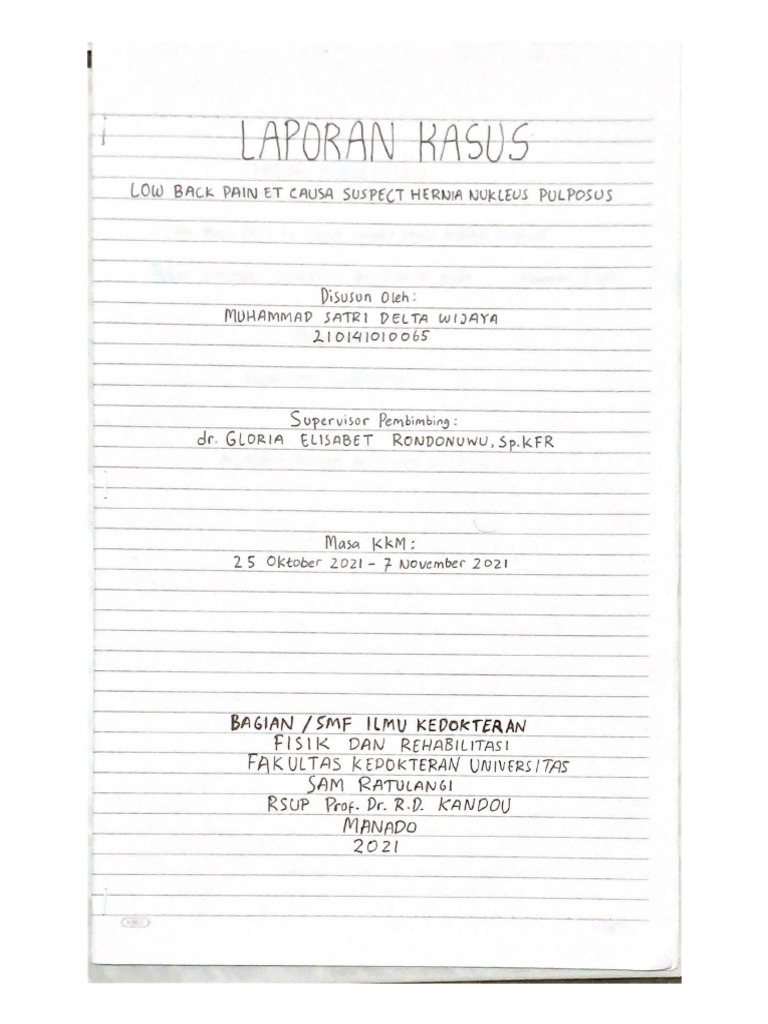 LAPORAN KASUS
LOW BACK PAIN ET CAUSA SUSPECT HERNIA NUKLEUS PULPOSUS
Disusun Oleh:
MUHAMMAD SATRI DELTA WIJAYA
210141010065
Supervisor Pembimbing:
dr. GLORIA ELISABET RONDONUWU, Sp.KFR
Masa KKM:
25 Oktober 2021 - 7 November 2021
BAGIAN / SMF ILMU KEDOKTERAN
FISIK DAN REHABILITASI
FAKULTAS KEDOKTERAN UNIVERSITAS
SAM RATULANGI
RSUP Prof. Dr. R.D. KANDOU
MANADO
2021